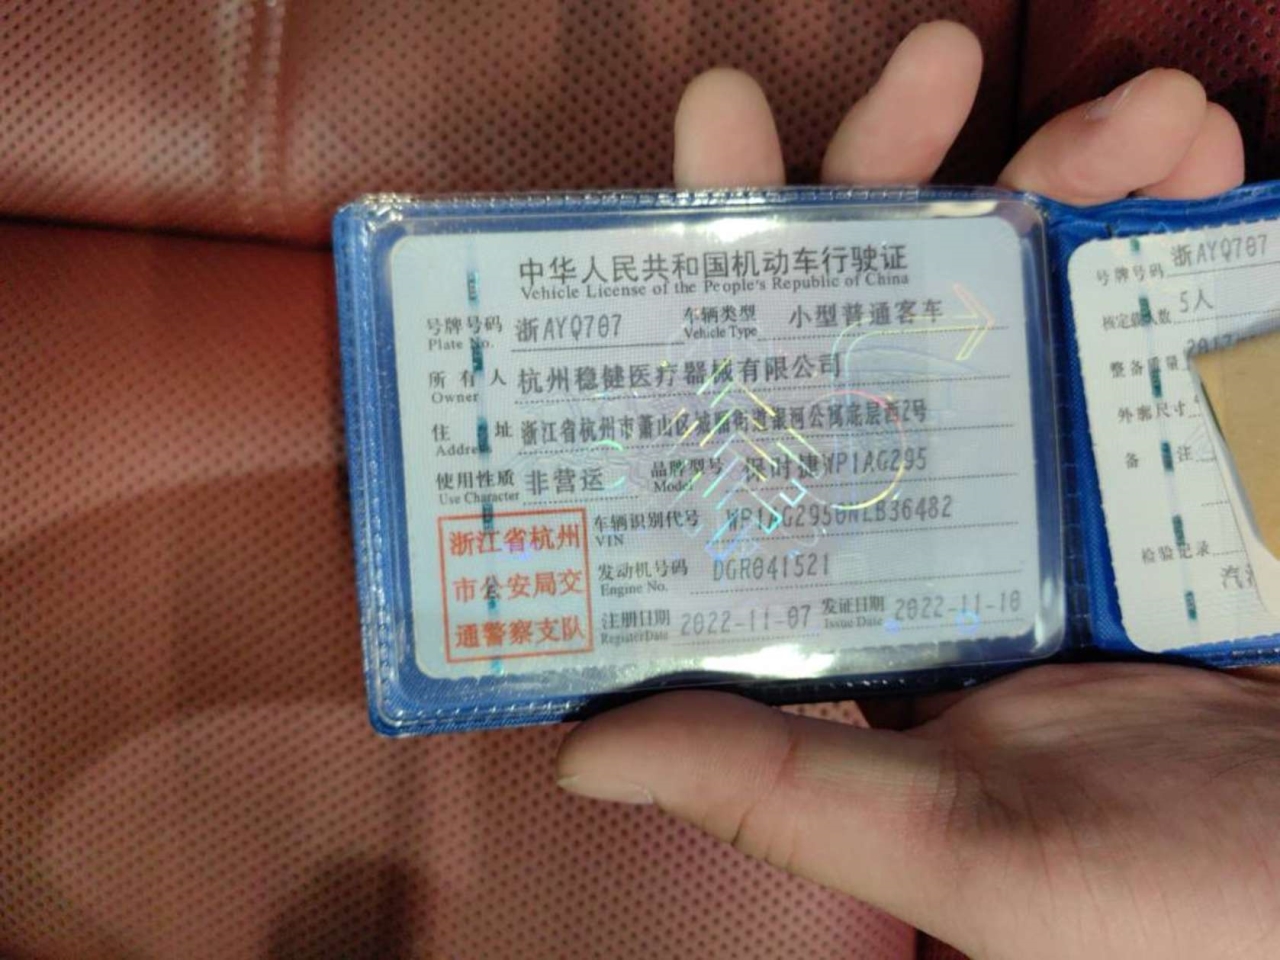 中华人民共和国机动车行驶证
Vehicle License of the People's Republic of China
号牌号码 浙AYQ707 车辆类型 小型普通客车
Plate No. Vehicle Type
所有人 杭州稳健医疗器械有限公司
Owner
住址 浙江省杭州市萧山区城厢街道银河公寓底层西2号
Address
使用性质 非营运 品牌型号 保时捷WP1AG295
Use Character Model
浙江省杭州
市公安局交
通警察支队
车辆识别代号 WP1AG2950NLB36482
VIN
发动机号码 DGR041521
Engine No.
注册日期 2022-11-07 发证日期 2022-11-10
Register Date Issue Date
号牌号码 浙AYQ707
核定载人数 5人
整备质量
外廓尺寸
备注
检验记录